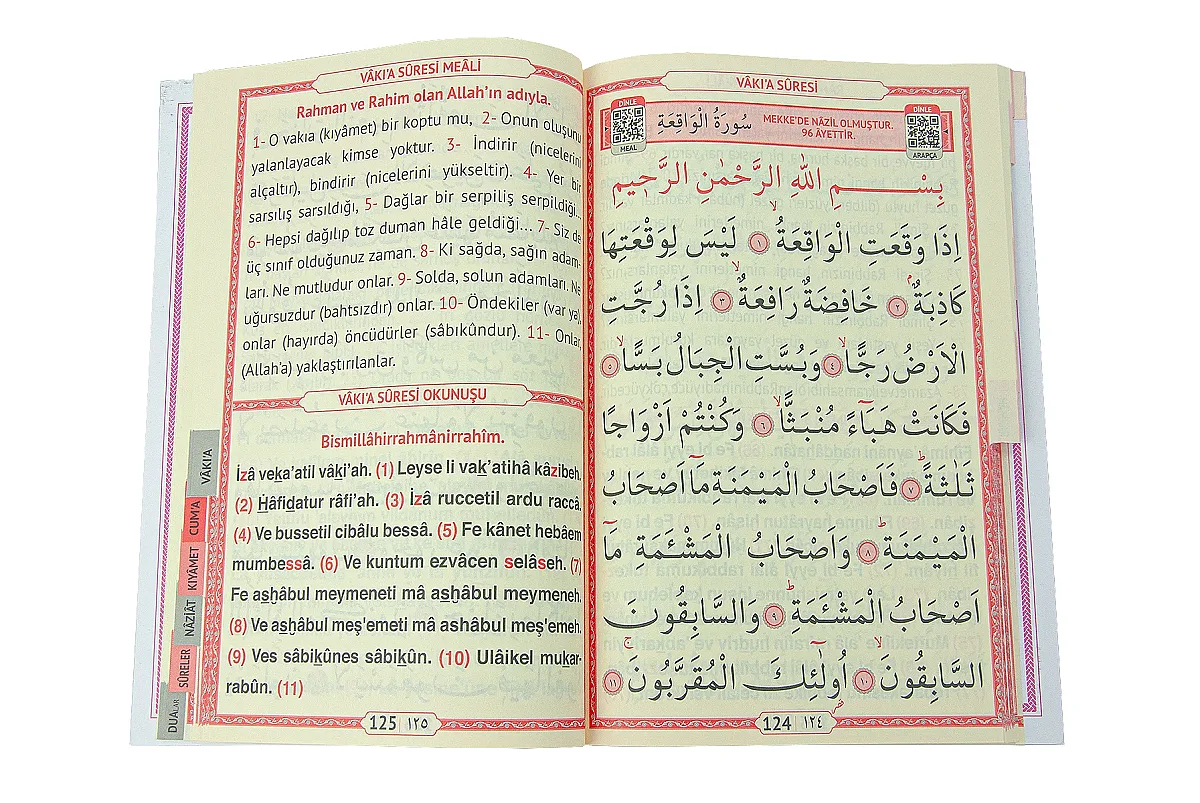 VÂKI'A SÛRESİ MEÂLİ
Rahman ve Rahim olan Allah'ın adıyla.
1- O vakıa (kıyâmet) bir koptu mu, 2- Onun oluşunu
yalanlayacak kimse yoktur. 3- İndirir (nicelerini
alçaltır), bindirir (nicelerini yükseltir). 4- Yer bir
sarsılış sarsıldığı, 5- Dağlar bir serpiliş serpildiği...
6- Hepsi dağılıp toz duman hâle geldiği... 7- Siz de
üç sınıf olduğunuz zaman. 8- Ki sağda, sağın adam-
ları. Ne mutludur onlar. 9- Solda, solun adamları. Ne
uğursuzdur (bahtsızdır) onlar. 10- Öndekiler (var ya),
onlar (hayırda) öncüdürler (sâbıkûndur). 11- Onlar,
(Allah'a) yaklaştırılanlar.
VÂKI'A SÛRESİ OKUNUŞU
Bismillâhirrahmânirrahîm.
İzâ veka'atil vâki'ah. (1) Leyse li vak'atihâ kâzibeh.
(2) Hâfidatur râfi'ah. (3) İzâ ruccetil ardu raccâ.
(4) Ve bussetil cibâlu bessâ. (5) Fe kânet hebâem
mumbessâ. (6) Ve kuntum ezvâcen selâseh. (7)
Fe ashâbul meymeneti mâ ashâbul meymeneh.
(8) Ve ashâbul meş'emeti mâ ashâbul meş'emeh.
(9) Ves sâbikûnes sâbikûn. (10) Ulâikel mukar-
rabûn. (11)
VÂKI'A
CUM'A
KIYÂMET
NÂZİÂT
SÛRELER
DUALAR
125 | ١٢٥
VÂKI'A SÛRESİ
DİNLE
MEAL
سُورَةُ الْوَاقِعَةِ
MEKKE'DE NÂZİL OLMUŞTUR.
96 ÂYETTİR.
DİNLE
ARAPÇA
بِسْمِ اللّٰهِ الرَّحْمٰنِ الرَّحٖيمِ
اِذَا وَقَعَتِ الْوَاقِعَةُۙ ﴿١﴾ لَيْسَ لِوَقْعَتِهَا
كَاذِبَةٌۢ ﴿٢﴾ خَافِضَةٌ رَافِعَةٌۙ ﴿٣﴾ اِذَا رُجَّتِ
الْاَرْضُ رَجًّاۙ ﴿٤﴾ وَبُسَّتِ الْجِبَالُ بَسًّاۙ ﴿٥﴾
فَكَانَتْ هَبَٓاءً مُنْبَثًّاۙ ﴿٦﴾ وَكُنْتُمْ اَزْوَاجًا
ثَلٰثَةًۜ ﴿٧﴾ فَاَصْحَابُ الْمَيْمَنَةِ مَٓا اَصْحَابُ
الْمَيْمَنَةِۜ ﴿٨﴾ وَاَصْحَابُ الْمَشْـَٔمَةِ مَٓا
اَصْحَابُ الْمَشْـَٔمَةِۜ ﴿٩﴾ وَالسَّابِقُونَ
السَّابِقُونَۚۙ ﴿١٠﴾ اُو۬لٰٓئِكَ الْمُقَرَّبُونَۚ ﴿١١﴾
124 | ١٢٤